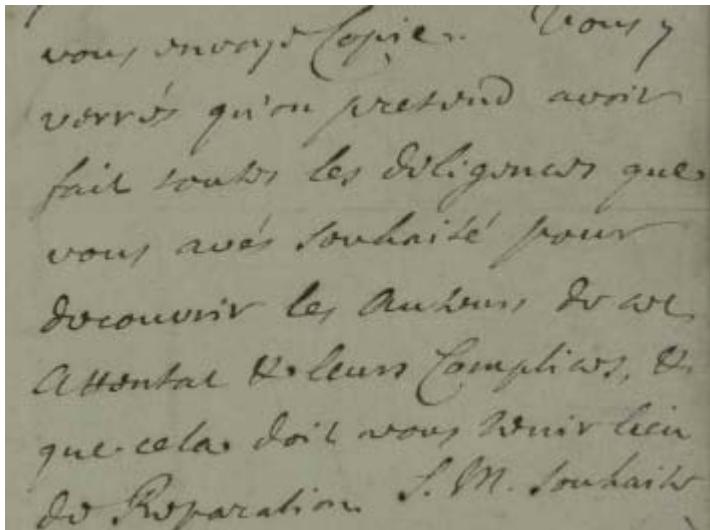 vous envoye Copie. Vous y
verrés qu'on pretend avoir
fait toutes les diligences que
vous avés souhaité pour
decouvrir les Auteurs de cet
Attentat & leurs Complices, &
que cela doit vous tenir lieu
de Reparation. S. M. souhaite